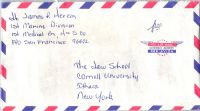 Lt James R Herron
1st Marine Division
1st Medical Bn,
FPO San Francisco 96602
The Law School
Cornell University
Ithaca
New York